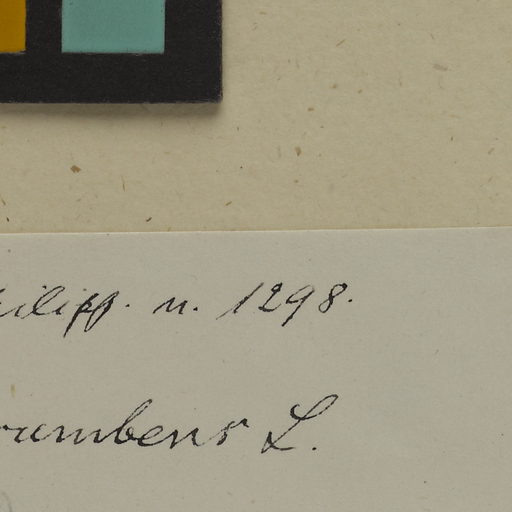 ilipp. n. 1298.
umbens L.